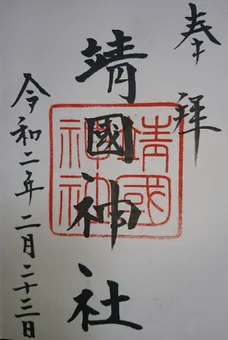 奉拝
靖國神社
靖國神社
令和二年二月二十三日